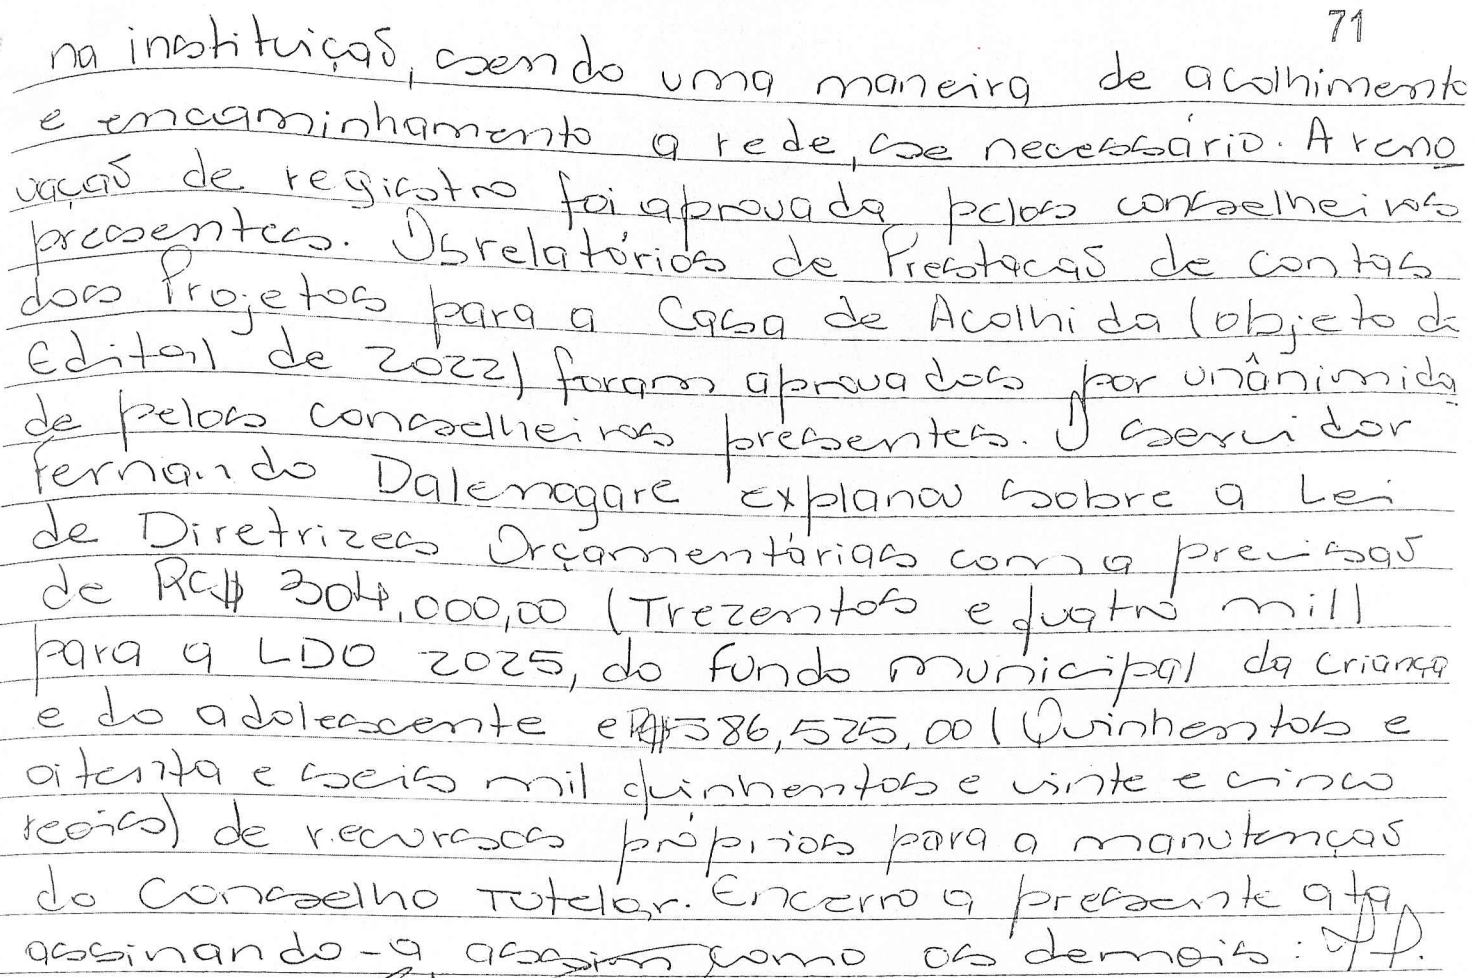 71
na instituição, sendo uma maneira de acolhimento
e encaminhamento a rede, se necessário. A reno
vação de registro foi aprovada pelos conselheiros
presentes. Os relatórios de Prestação de contas
dos Projetos para a Casa de Acolhida (objeto de
Edital de 2022) foram aprovados por unânimida
de pelos conselheiros presentes. O servidor
Fernando Dalenogare explanou sobre a Lei
de Diretrizes Orçamentárias com a previsão
de R$ 304.000,00 (Trezentos e quatro mil)
para a LDO 2025, do fundo municipal da criança
e do adolescente e R$ 586,525,00 (Quinhentos e
oitenta e seis mil quinhentos e vinte e cinco
reais) de recursos próprios para a manutenção
do Conselho Tutelar. Encerro a presente ata,
assinando-a assim como os demais: